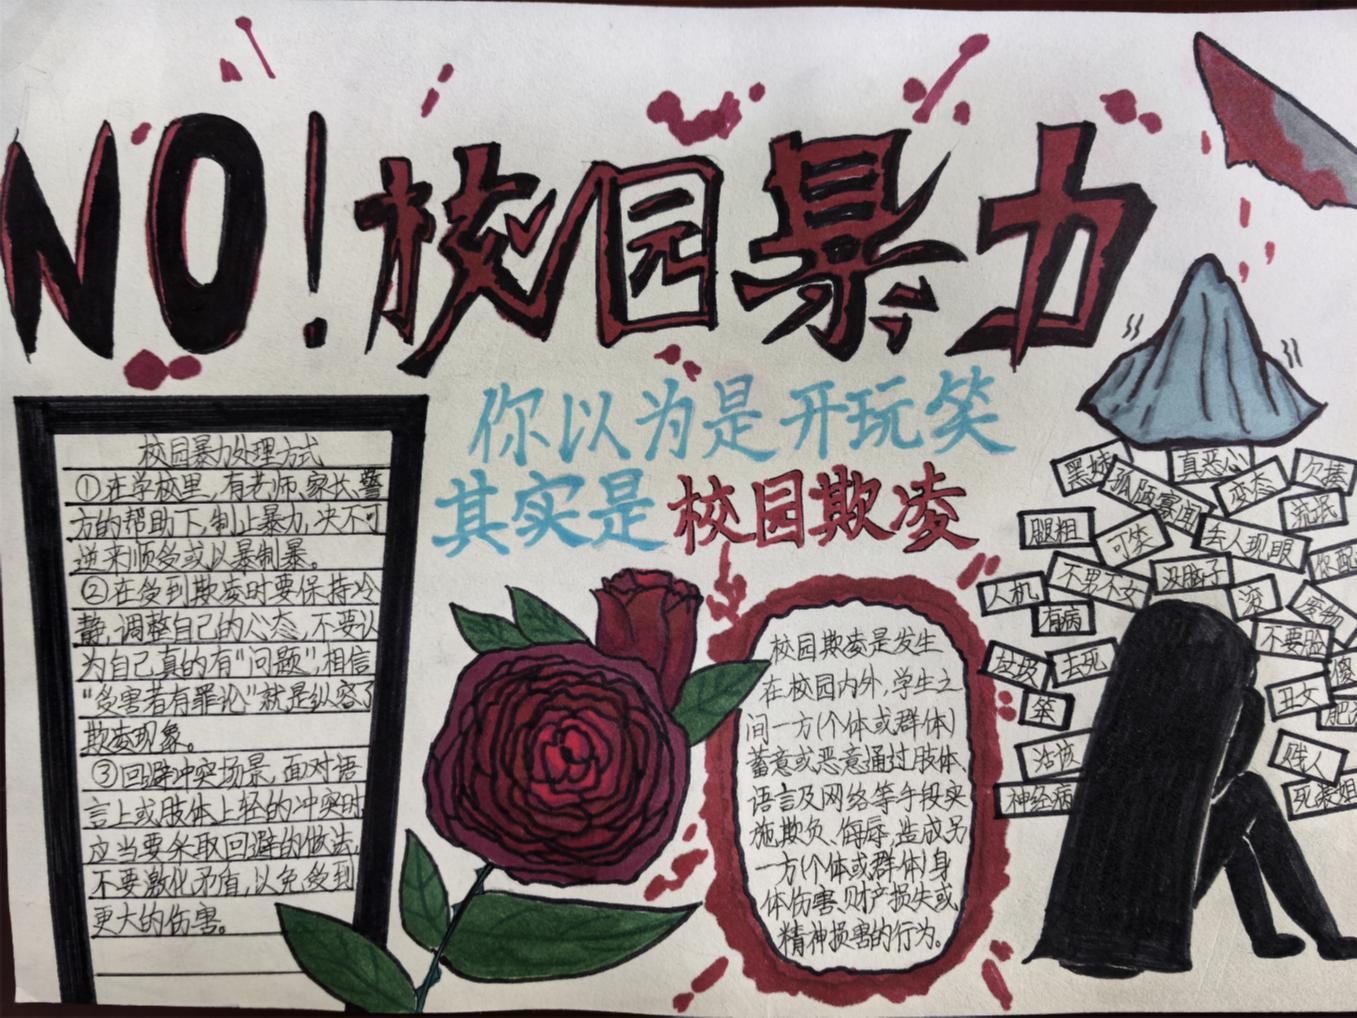 NO!校园暴力
你以为是开玩笑
其实是校园欺凌
校园暴力处理方式
①在学校里,有老师、家长、警
方的帮助下,制止暴力,决不可
逆来顺受或以暴制暴。
②在受到欺凌时要保持冷
静,调整自己的心态,不要认
为自己真的有"问题",相信
"受害者有罪论"就是纵容了
欺凌现象。
③回避冲突场景,面对语
言上或肢体上轻的冲突时
应当要采取回避的做法,
不要激化矛盾,以免受到
更大的伤害。
校园欺凌是发生
在校园内外,学生之
间一方(个体或群体)
蓄意或恶意通过肢体、
语言及网络等手段实
施欺负、侮辱,造成另
一方(个体或群体)身
体伤害、财产损失或
精神损害的行为。
真恶心
欠揍
孤陋寡闻
变态
流氓
腿粗
可笑
丢人现眼
不男不女
没脑子
滚
人机
有病
不要脸
垃圾
去死
丑女
笨
活该
贱人
神经病